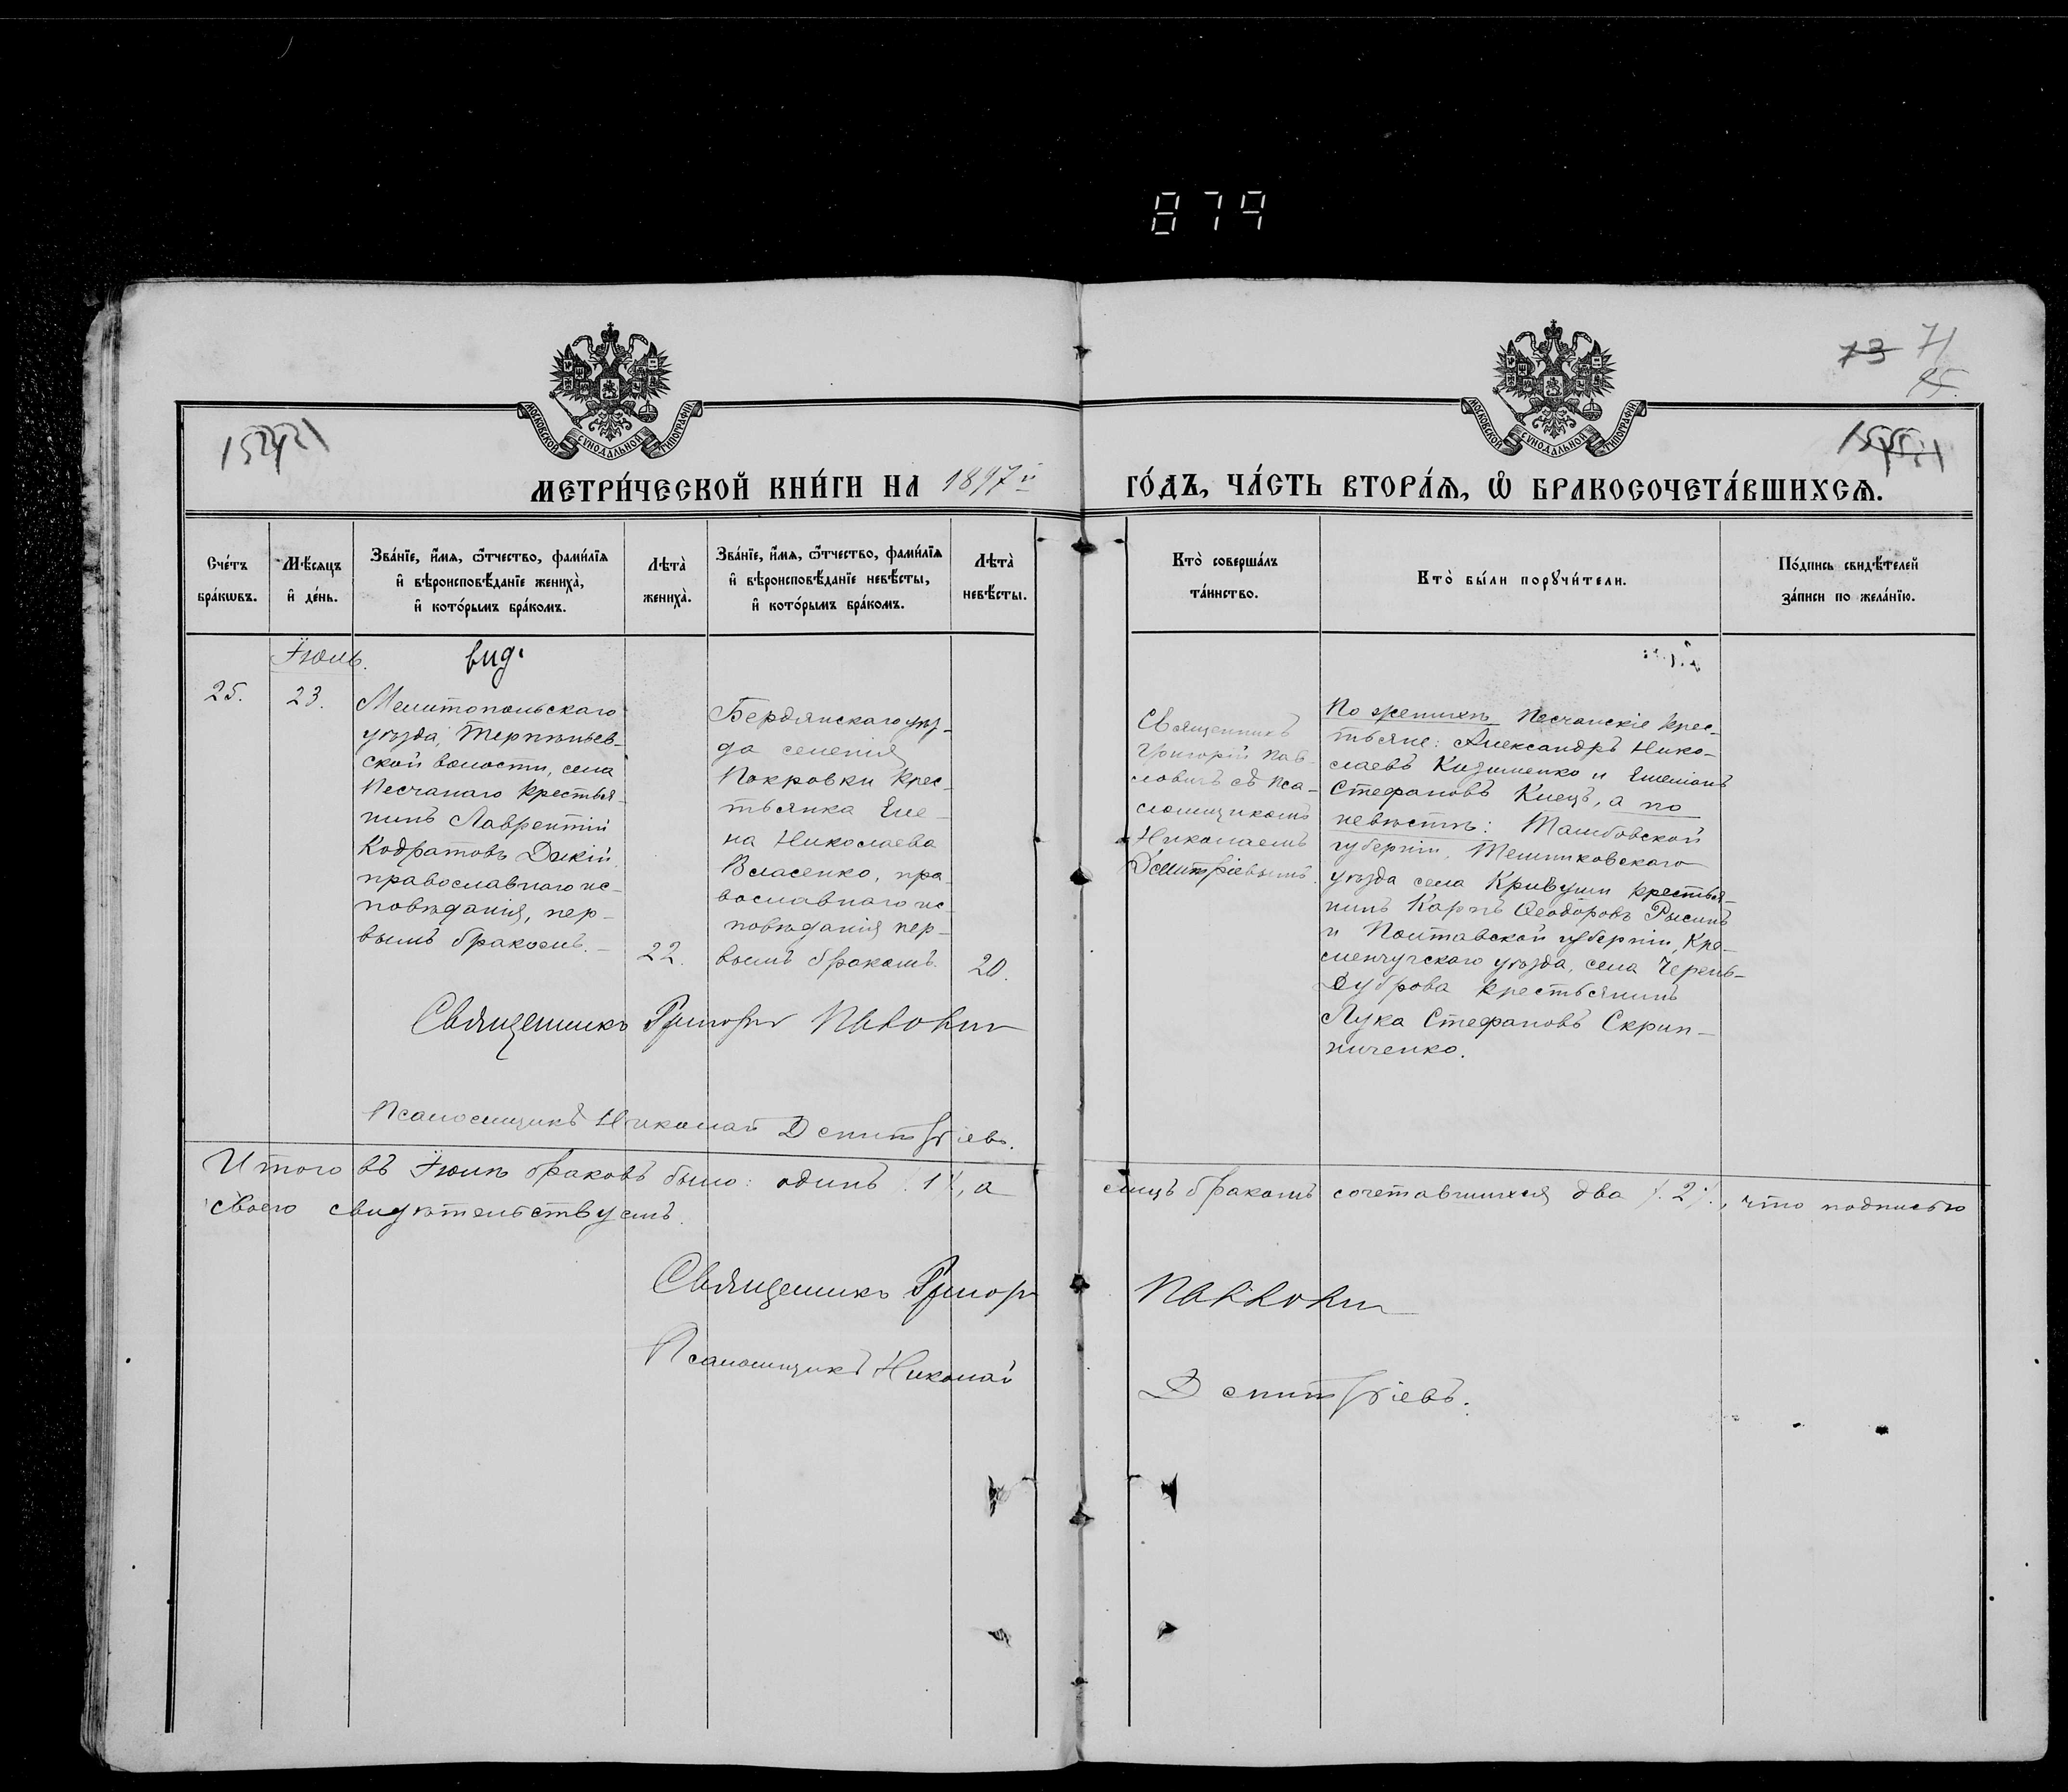 879
73 71
25.
МОСКОВСКОЙ СѴНОДАЛЬНОЙ ТИПОГРАФІИ
МОСКОВСКОЙ СѴНОДАЛЬНОЙ ТИПОГРАФІИ
МЕТРИ́ЧЕСКОЙ КНИ́ГИ НА 1897й ГО́ДЪ, ЧА́СТЬ ВТОРА́Ѧ, Ѡ҆ БРАКОСОЧЕТА́ВШИХСѦ.
Сче́тъ бра́кѡвъ.
Мѣ́сѧцъ и҆ де́нь.
Зва́нїе, и҆́мѧ, ѻ҆́тчество, фами́лїѧ и҆ вѣроисповѣ́данїе жениха̀, и҆ кото́рымъ бра́комъ.
Лѣта̀ жениха̀.
Зва́нїе, и҆́мѧ, ѻ҆́тчество, фами́лїѧ и҆ вѣроисповѣ́данїе невѣ́сты, и҆ кото́рымъ бра́комъ.
Лѣта̀ невѣ́сты.
Кто̀ соверша́лъ та́инство.
Кто̀ бы́ли порꙋчи́тели.
По́дпись свидѣ́телей за́писи по жела́нїю.
Іюль.
вид.
25.
23.
Мелитопольскаго
уѣзда, Терпѣньев-
ской волости, села
Песчанаго крестья-
нинъ Лаврентій
Кодратовъ Дикій,
православнаго ис-
повѣданія, пер-
вымъ бракомъ.
22.
Бердянскаго уѣз-
да селенія
Покровки крес-
тьянка Еле-
на Николаева
Власенко, пра-
вославнаго ис-
повѣданія пер-
вымъ бракомъ.
20.
Священникъ
Григорій Пав-
ловичъ съ пса-
ломщикомъ
Николаемъ
Дмитріевымъ.
По женихѣ Песчанскіе крес-
тьяне: Александръ Нико-
лаевъ Кизименко и Емеліанъ
Стефановъ Киецъ, а по
невѣстѣ: Тамбовской
губерніи, Темниковскаго
уѣзда села Кривуши крестья-
нинъ Карпъ Ѳеодоровъ Рысинъ
и Полтавской губерніи, Кре-
менчугскаго уѣзда, села
Дуброва крестьянинъ
Лука Стефановъ Скрип-
ниченко.
Священникъ Григорій Павловичъ
Псаломщикъ Николай Дмитріевъ.
Итого въ Іюлѣ браковъ было: одинъ /.1./, а лицъ бракомъ сочетавшихся два /.2./, что подписью
своею свидѣтельствуемъ.
Священникъ Григорій Павловичъ
Псаломщикъ Николай Дмитріевъ.